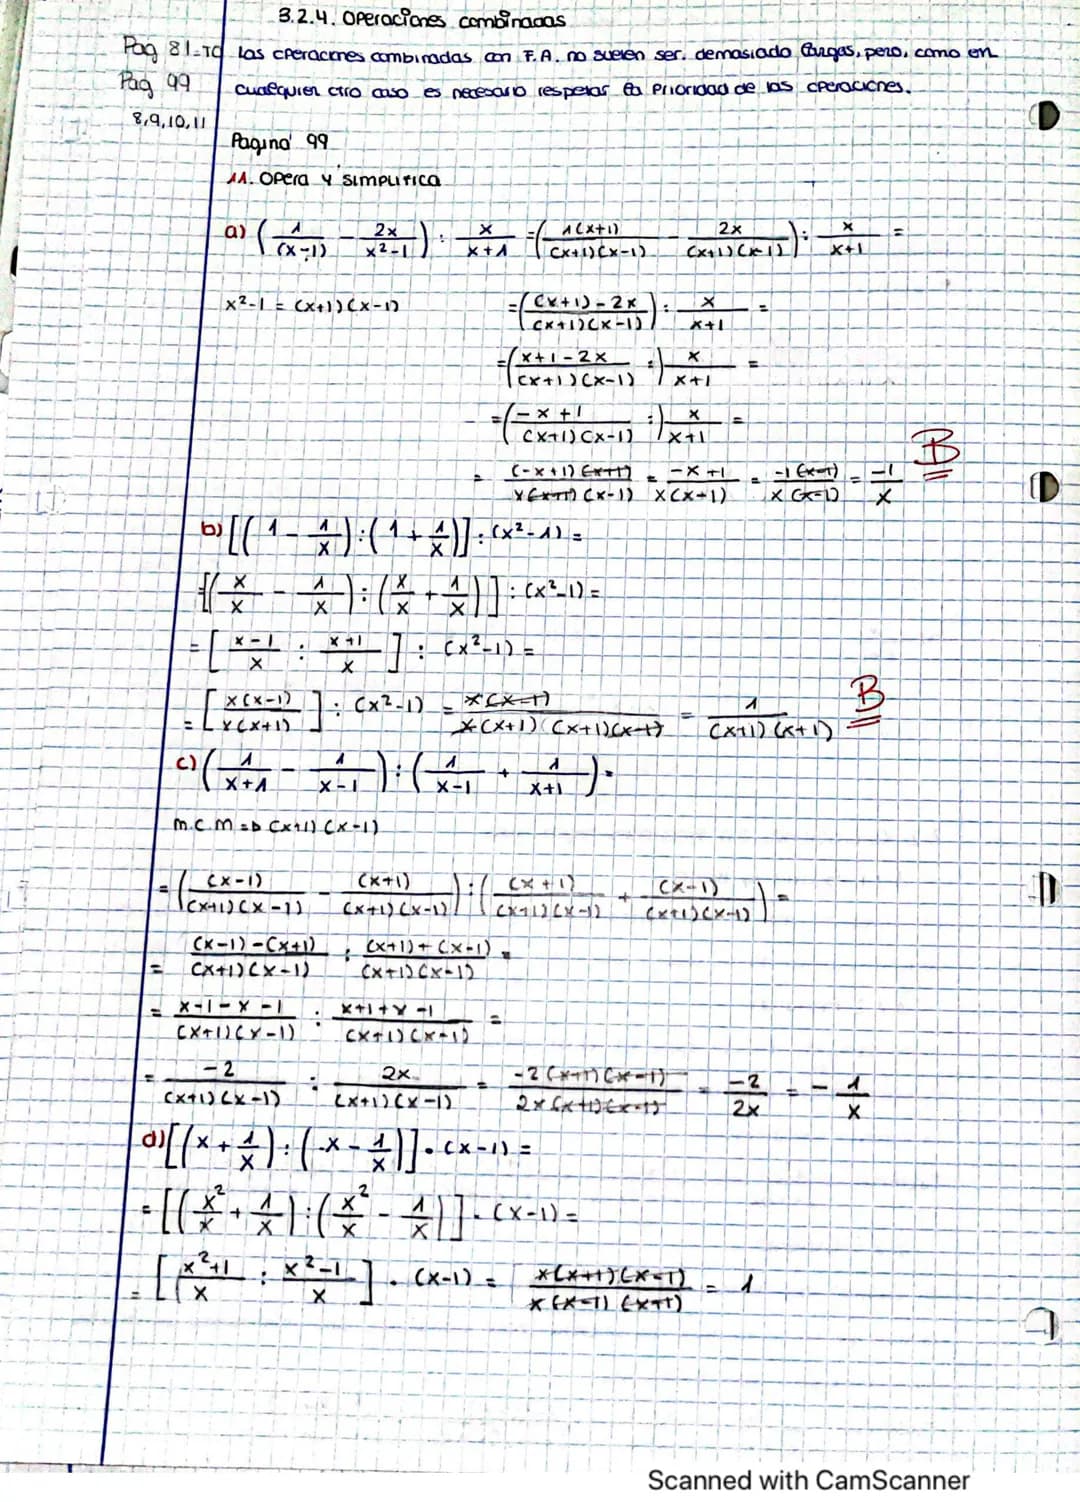 3.2.4. Operaciones combinadas
Pag 81-70 Las operaciones combinadas con F.A. no suelen ser demasiado largas, pero, como en
Pag 99 cualquier otro caso es necesario respetar la prioridad de las operaciones.
8,9,10,11
Pagina 99
11. Opera y simplifica
a) (1/(x-1) - 2x/(x²-1)) : x/(x+1) = (1(x+1)/((x+1)(x-1)) - 2x/((x+1)(x-1))) : x/(x+1) =
x²-1 = (x+1)(x-1) =(((x+1)-2x)/((x+1)(x-1))) : x/(x+1) =
=((x+1-2x)/((x+1)(x-1)) :) x/(x+1) =
=((-x+1)/((x+1)(x-1)) :) x/(x+1) =
= (-x+1)(x+1)/(x(x+1)(x-1)) = (-x+1)/(x(x-1)) = -1(x-1)/(x(x-1)) = -1/x B
b) [(1 - 1/x) : (1 + 1/x)] : (x²-1) =
=[(x/x - 1/x) : (x/x + 1/x)] : (x²-1) =
= [(x-1)/x : (x+1)/x] : (x²-1) =
= [x(x-1)/(x(x+1))] : (x²-1) = x(x-1)/(x(x+1)(x+1)(x-1)) = 1/((x+1)(x+1)) B
c) (1/(x+1) - 1/(x-1)) : (1/(x-1) + 1/(x+1)) =
m.c.m => (x+1)(x-1)
= ((x-1)/((x+1)(x-1)) - (x+1)/((x+1)(x-1))) : ((x+1)/((x+1)(x-1)) + (x-1)/((x+1)(x-1))) =
= ((x-1)-(x+1))/((x+1)(x-1)) : ((x+1)+(x-1))/((x+1)(x-1)) =
= (x-1-x-1)/((x+1)(x-1)) : (x+1+x-1)/((x+1)(x-1)) =
= -2/((x+1)(x-1)) : 2x/((x+1)(x-1)) = -2(x+1)(x-1)/(2x(x+1)(x-1)) = -2/2x = - 1/x
d) [(x + 1/x) : (x - 1/x)] · (x-1) =
= [(x²/x + 1/x) : (x²/x - 1/x)] · (x-1) =
= [(x²+1)/x : (x²-1)/x] · (x-1) = x(x+1)(x-1)/(x(x-1)(x+1)) = 1
Scanned with CamScanner